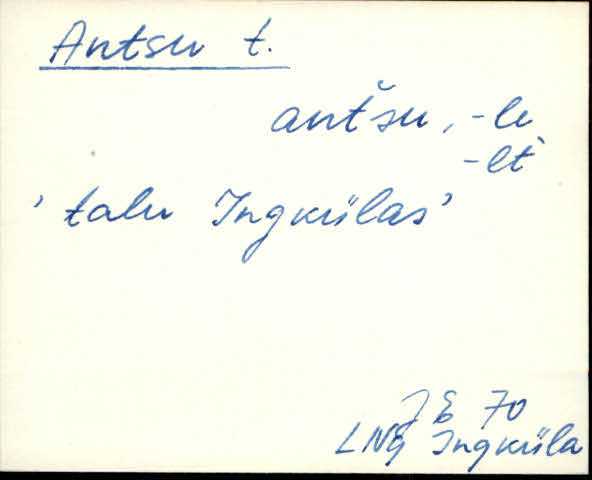 Antsu t.
antšu, -le
-lt
'talu Ingkülas'
J E 70
LNG Ingküla